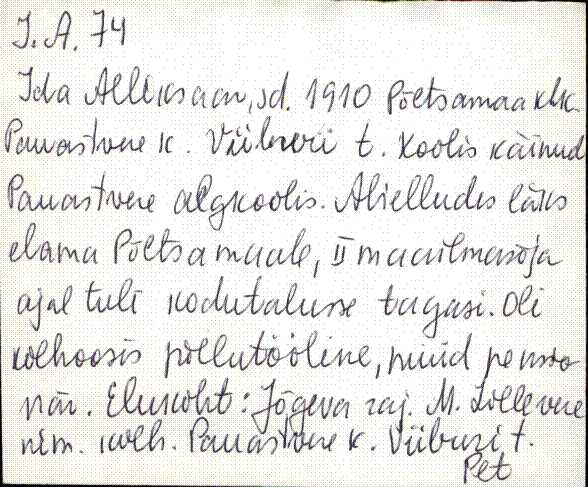 I. A. 74
Ida Alliksaar, sd. 1910 Põltsamaa khk.
Pauastvere k. Viiburi t. Koolis käinud
Pauastvere algkoolis. Abielludes läks
elama Põltsamaale, II maailmasõja
ajal tuli kodutalusse tagasi. Oli
kolhoosis põllutööline, nüüd pensio
när. Elukoht: Jõgeva raj. M. Lillevere
nim. kolh. Pauastvere k. Viiburi t.
Pet